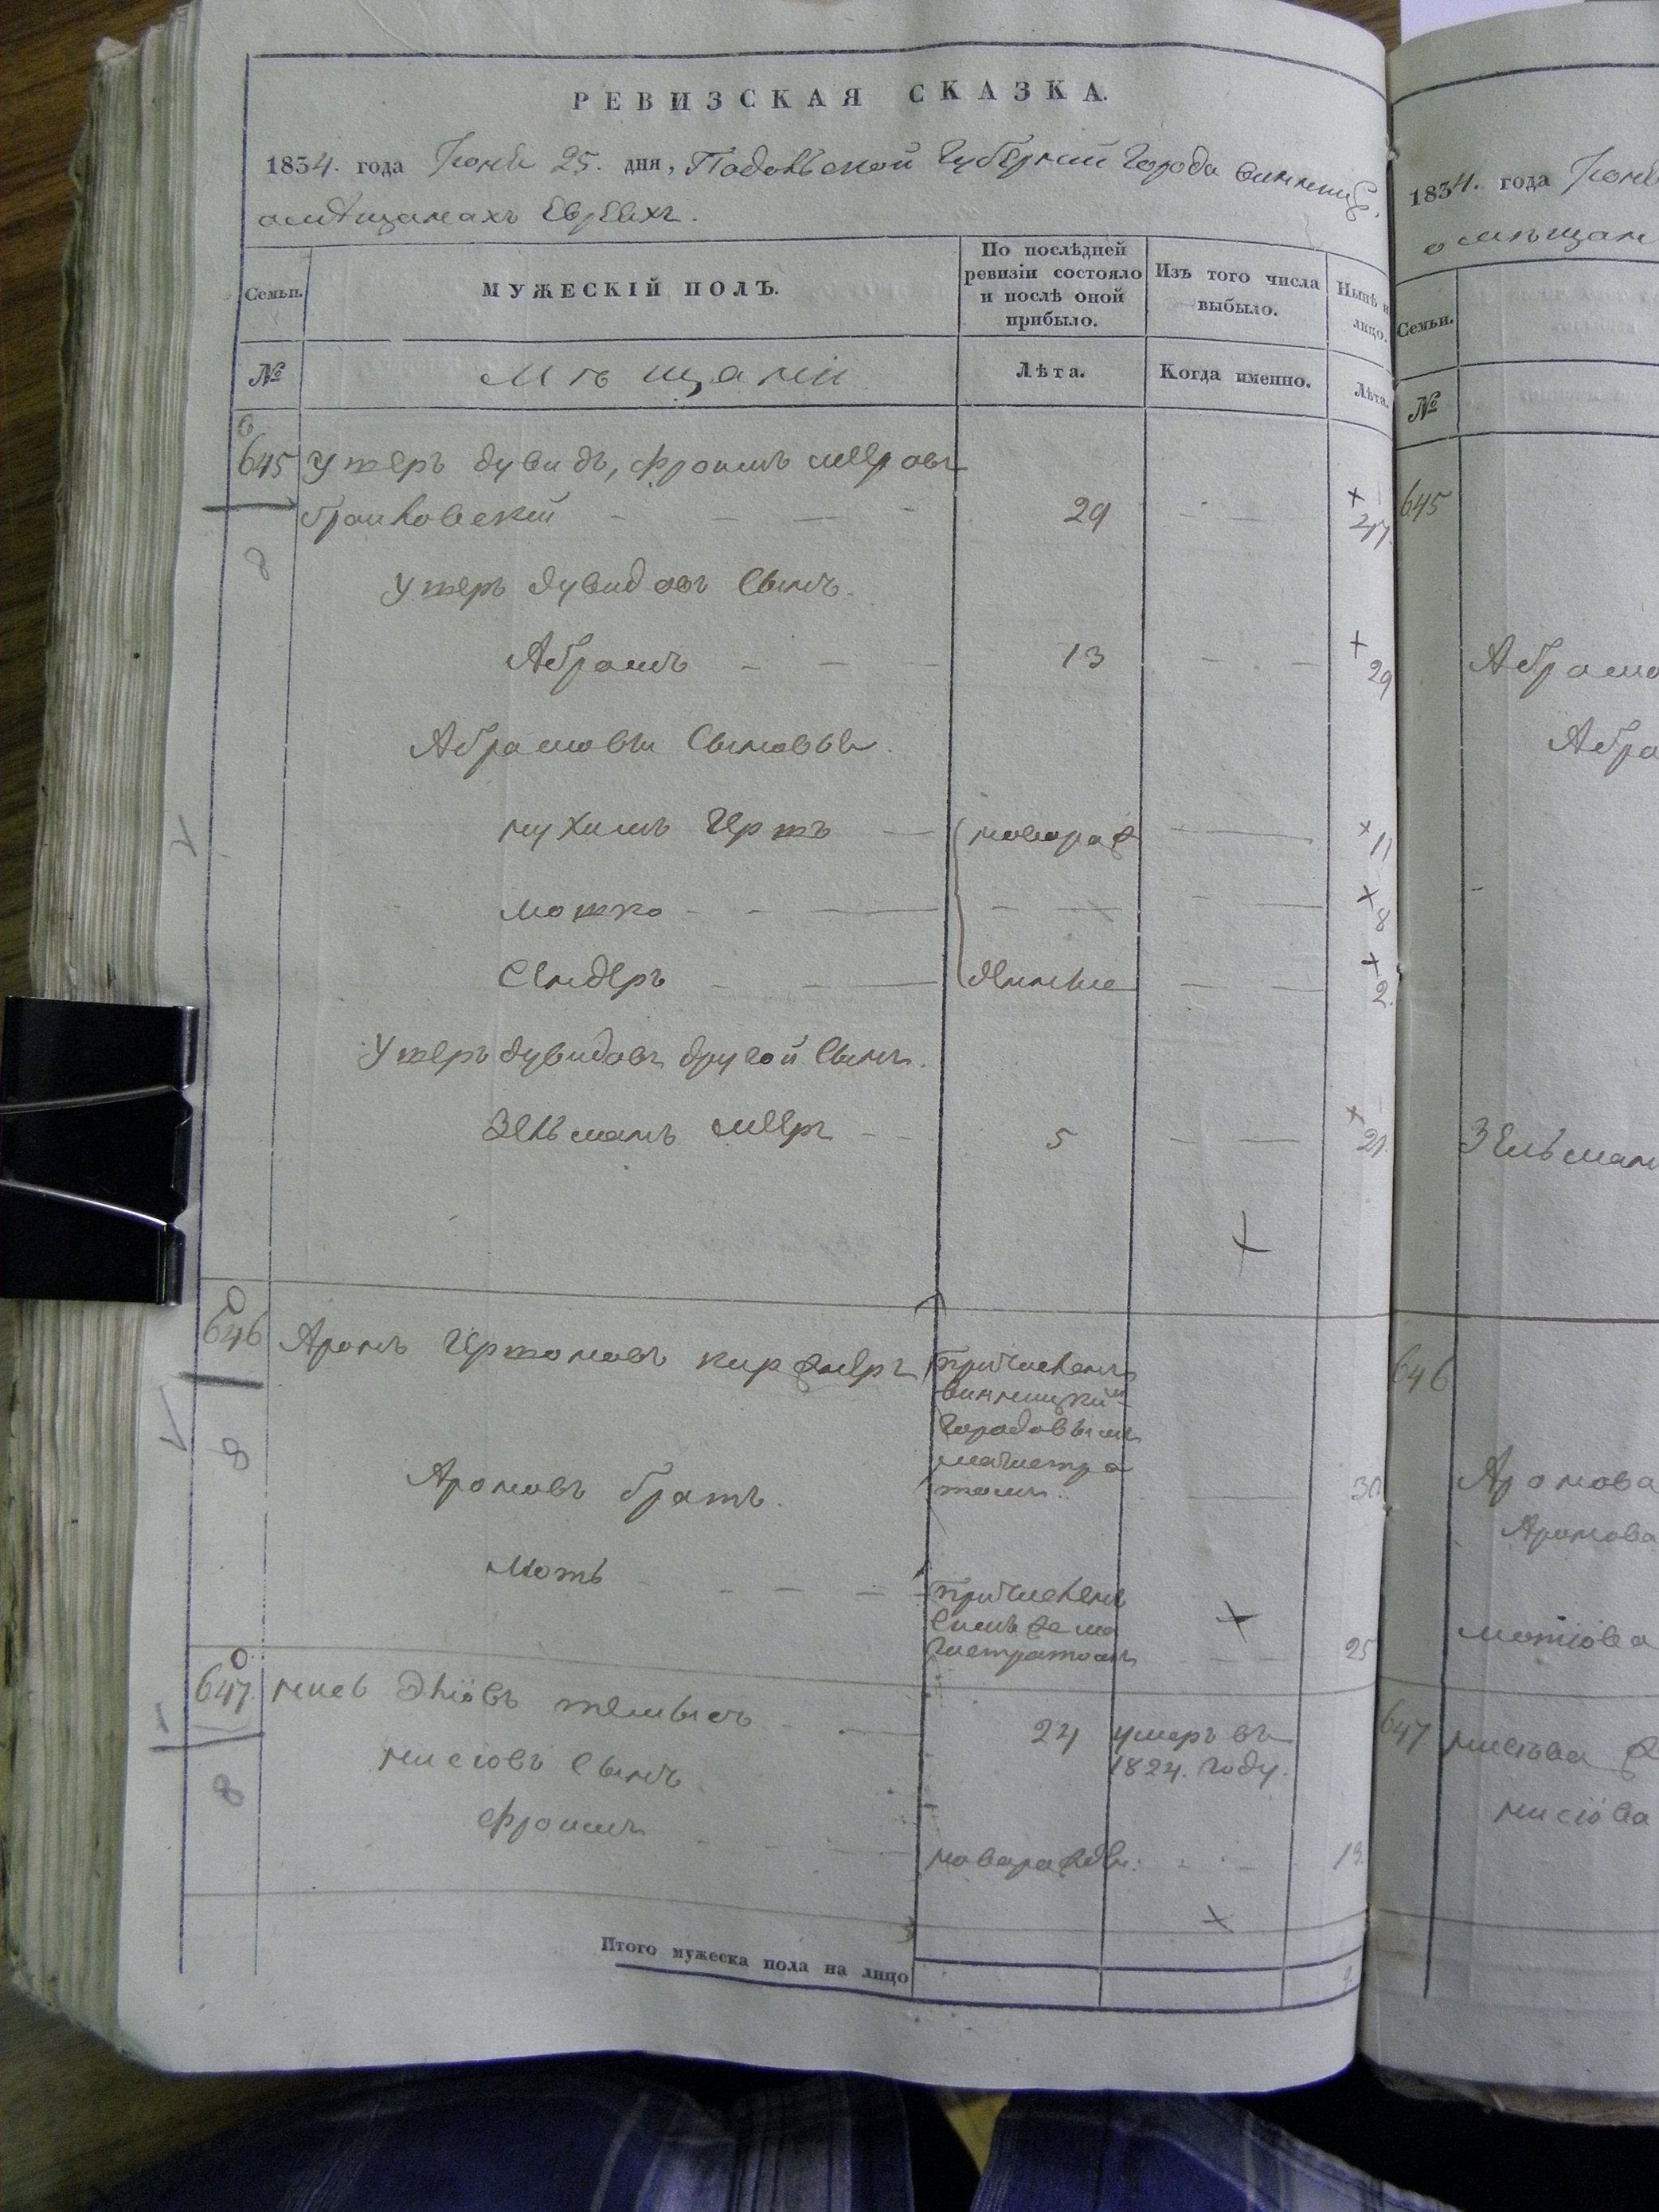 РЕВИЗСКАЯ СКАЗКА.
1834. года Іюня 25. дня, Подольской Губерніи Города Винницы
о мѣщанахъ Евреяхъ.
Семьи.
МУЖЕСКІЙ ПОЛЪ.
По послѣдней ревизіи состояло и послѣ оной прибыло.
Изъ того числа выбыло.
Нынѣ на лицо.
№
Мѣщани
Лѣта.
Когда именно.
Лѣта.
645 Утеръ дувидъ, Фроимъ Мееровъ
Браиловский 29 47.
8
Утеръ дувидовъ Сынъ.
Абрамъ 13 29
Абрамовы Сыновья.
Нухимъ Герть новорож 11
Мотко 8
Сендеръ денные 2.
Утеръ дувидовъ другой Сынъ.
Зельманъ Меер 5 21.
646 Аронъ Гертковъ Киржнеръ причисленъ
Винницкимъ
Городовымъ
магистра
томъ. 30
8
Ароновъ братъ.
Моть причисленъ
симъ же ма
гистратомъ 25
647. Нись Эліовъ 24 умеръ въ
1824. году.
8
Нисіовъ Сынъ
Фроимъ новорожден. 13.
Итого мужеска пола на лицо 9
1834. года Іюня
о мѣщан
Семьи.
№
645
Абрамо
Абра
Зельман
646
Аронова
Аронова
Мотіова
647 Нисіова
Нисіова